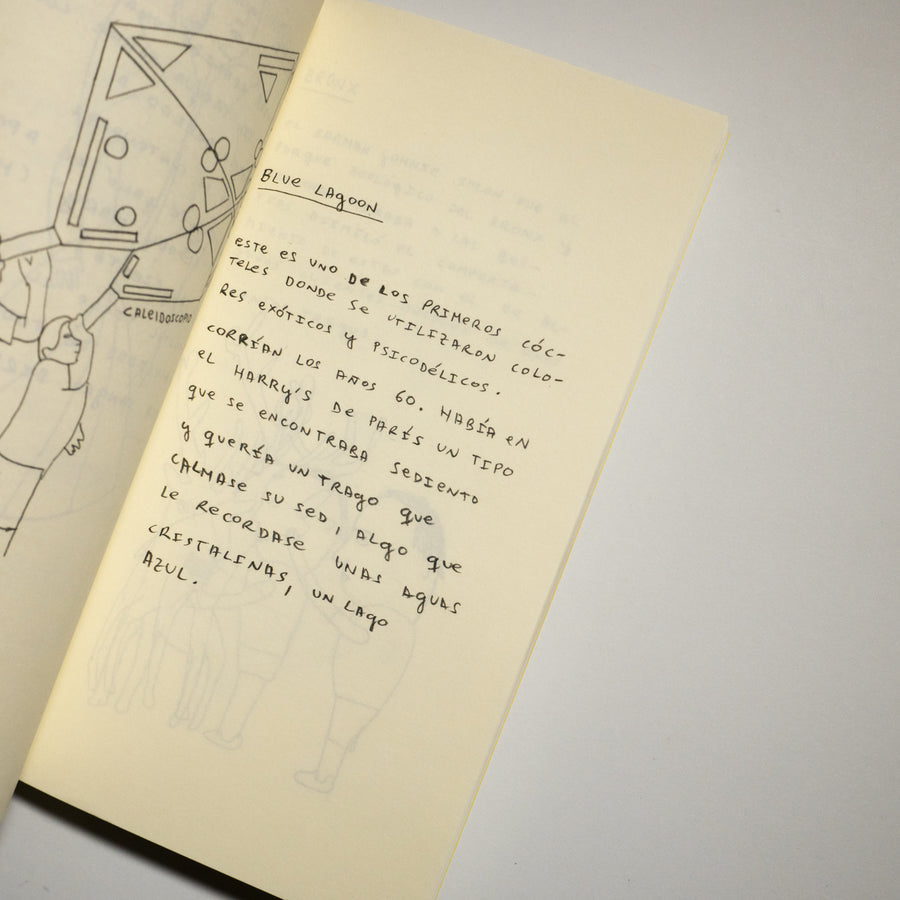 CALEIDOSCOPO
BLUE LAGOON
ESTE ES UNO DE LOS PRIMEROS CÓC-
TELES DONDE SE UTILIZARON COLO-
RES EXÓTICOS Y PSICODÉLICOS.
CORRÍAN LOS AÑOS 60. HABÍA EN
EL HARRY'S DE PARÍS UN TIPO
QUE SE ENCONTRABA SEDIENTO
Y QUERÍA UN TRAGO QUE
CALMASE SU SED, ALGO QUE
LE RECORDASE UNAS AGUAS
CRISTALINAS, UN LAGO
AZUL.